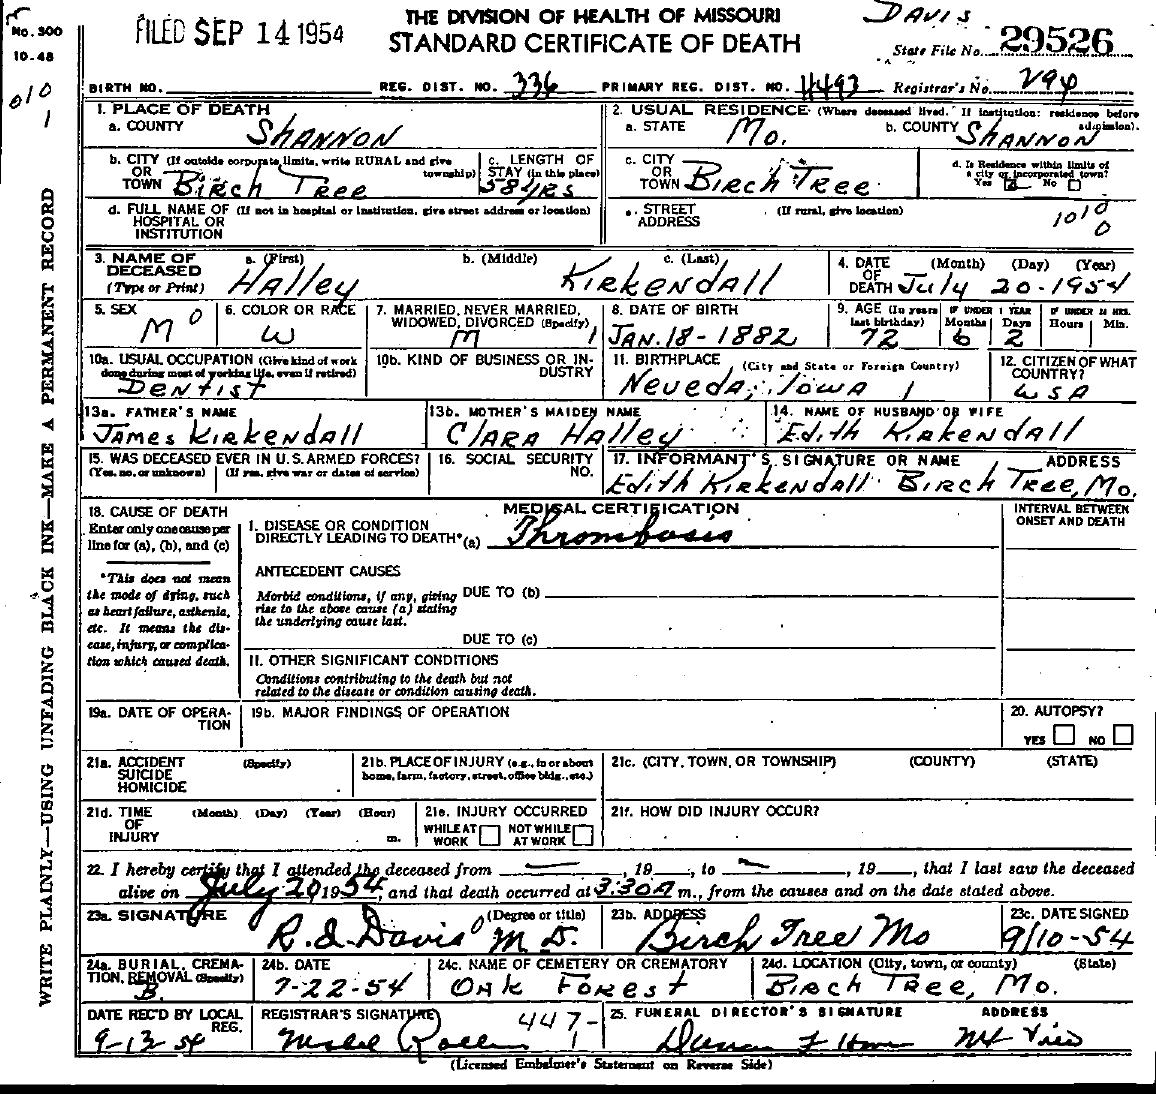 No. 300
10-48
FILED SEP 14 1954
THE DIVISION OF HEALTH OF MISSOURI
STANDARD CERTIFICATE OF DEATH
DAVIS
State File No. 29526
BIRTH NO.
REG. DIST. NO. 336
PRIMARY REG. DIST. NO. 4493
Registrar's No.
010
1
WRITE PLAINLY—USING UNFADING BLACK INK—MAKE A PERMANENT RECORD
1. PLACE OF DEATH
a. COUNTY SHANNON
2. USUAL RESIDENCE (Where deceased lived. If institution: residence before admission).
a. STATE Mo.
b. COUNTY SHANNON
b. CITY (If outside corporate limits, write RURAL and give township)
OR
TOWN BIRCH TREE
c. LENGTH OF STAY (in this place)
58 yrs
c. CITY
OR
TOWN BIRCH TREE
d. Is Residence within limits of a city or incorporated town?
Yes No
d. FULL NAME OF (If not in hospital or institution, give street address or location)
HOSPITAL OR
INSTITUTION
e. STREET ADDRESS (If rural, give location)
1010
0
3. NAME OF DECEASED
(Type or Print)
a. (First) HALLEY
b. (Middle)
c. (Last) KIRKENDALL
4. DATE OF DEATH
(Month) (Day) (Year)
July 20-1954
5. SEX
M 0
6. COLOR OR RACE
W
7. MARRIED, NEVER MARRIED, WIDOWED, DIVORCED (Specify)
M 1
8. DATE OF BIRTH
JAN. 18-1882
9. AGE (In years last birthday)
72
IF UNDER 1 YEAR
Months 6
Days 2
IF UNDER 24 HRS.
Hours Min.
10a. USUAL OCCUPATION (Give kind of work done during most of working life, even if retired)
DENTIST
10b. KIND OF BUSINESS OR INDUSTRY
11. BIRTHPLACE (City and State or Foreign Country)
NEVEDA, IOWA 1
12. CITIZEN OF WHAT COUNTRY?
USA
13a. FATHER'S NAME
JAMES KIRKENDALL
13b. MOTHER'S MAIDEN NAME
CLARA HALLEY
14. NAME OF HUSBAND OR WIFE
EDITH KIRKENDALL
15. WAS DECEASED EVER IN U. S. ARMED FORCES?
(Yes, no, or unknown) (If yes, give war or dates of service)
16. SOCIAL SECURITY NO.
17. INFORMANT'S SIGNATURE OR NAME ADDRESS
EDITH KIRKENDALL BIRCH TREE, Mo.
18. CAUSE OF DEATH
Enter only one cause per line for (a), (b), and (c)
*This does not mean the mode of dying, such as heart failure, asthenia, etc. It means the disease, injury, or complication which caused death.
MEDICAL CERTIFICATION
INTERVAL BETWEEN ONSET AND DEATH
I. DISEASE OR CONDITION
DIRECTLY LEADING TO DEATH*(a) Thrombosis
ANTECEDENT CAUSES
Morbid conditions, if any, giving rise to the above cause (a) stating the underlying cause last.
DUE TO (b)
DUE TO (c)
II. OTHER SIGNIFICANT CONDITIONS
Conditions contributing to the death but not related to the disease or condition causing death.
19a. DATE OF OPERATION
19b. MAJOR FINDINGS OF OPERATION
20. AUTOPSY?
YES NO
21a. ACCIDENT (Specify)
SUICIDE
HOMICIDE
21b. PLACE OF INJURY (e.g., in or about home, farm, factory, street, office bldg., etc.)
21c. (CITY, TOWN, OR TOWNSHIP) (COUNTY) (STATE)
21d. TIME OF INJURY
(Month) (Day) (Year) (Hour)
m.
21e. INJURY OCCURRED
WHILE AT WORK NOT WHILE AT WORK
21f. HOW DID INJURY OCCUR?
22. I hereby certify that I attended the deceased from — , 19 , to — , 19 , that I last saw the deceased
alive on July 20, 1954, and that death occurred at 3:30 A m., from the causes and on the date stated above.
23a. SIGNATURE (Degree or title)
R. D. Davis M D.
23b. ADDRESS
Birch Tree Mo
23c. DATE SIGNED
9/10-54
24a. BURIAL, CREMATION, REMOVAL (Specify)
B.
24b. DATE
7-22-54
24c. NAME OF CEMETERY OR CREMATORY
OAK FOREST
24d. LOCATION (City, town, or county) (State)
BIRCH TREE, Mo.
DATE REC'D BY LOCAL REG.
9-13-54
REGISTRAR'S SIGNATURE
447-
25. FUNERAL DIRECTOR'S SIGNATURE ADDRESS
Mt View
(Licensed Embalmer's Statement on Reverse Side)